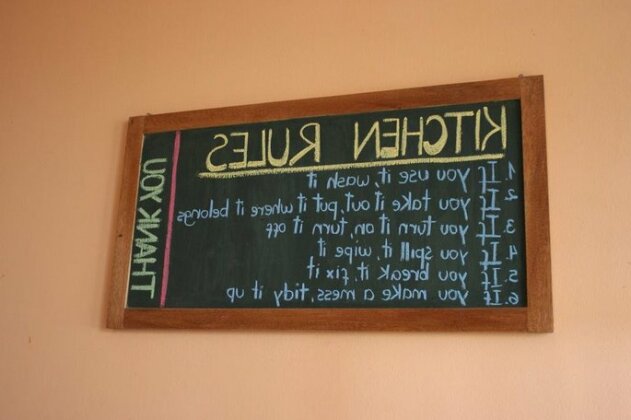 KITCHEN RULES
1. If you use it, wash it
2. If you take it out, put it where it belongs
3. If you turn it on, turn it off
4. If you spill it, wipe it
5. If you break it, fix it
6. If you make a mess, tidy it up
THANK YOU